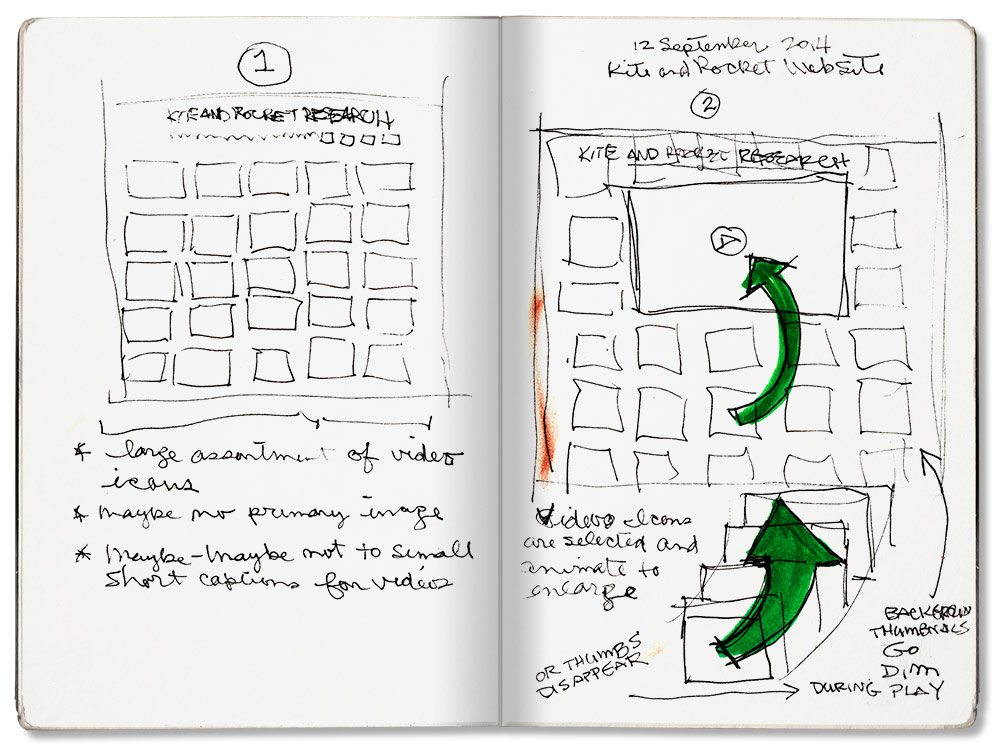 1
KITE AND ROCKET RESEARCH
* large assortment of video
icons
* maybe no primary image
* Maybe-Maybe not to small
short captions for videos
12 September 2014
Kite and Rocket Website
2
KITE AND ROCKET RESEARCH
Videos Icons
are selected and
animate to
enlarge
OR THUMBS
DISAPPEAR
BACKGROUN
THUMBNAILS
GO
DIM
DURING PLAY